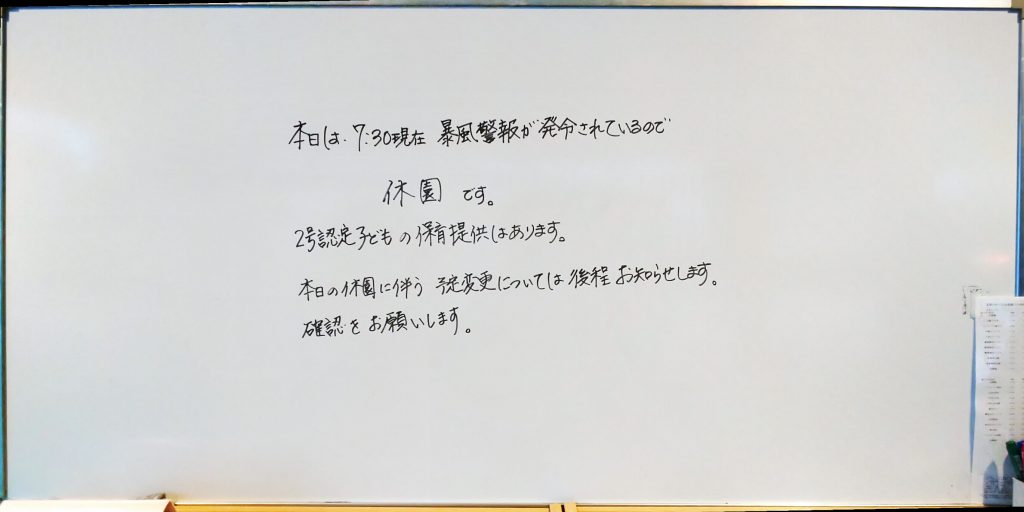 本日は、7:30現在 暴風警報が発令されているので
休園 です。
2号認定子どもの保育提供はあります。
本日の休園に伴う 予定変更については後程 お知らせします。
確認をお願いします。